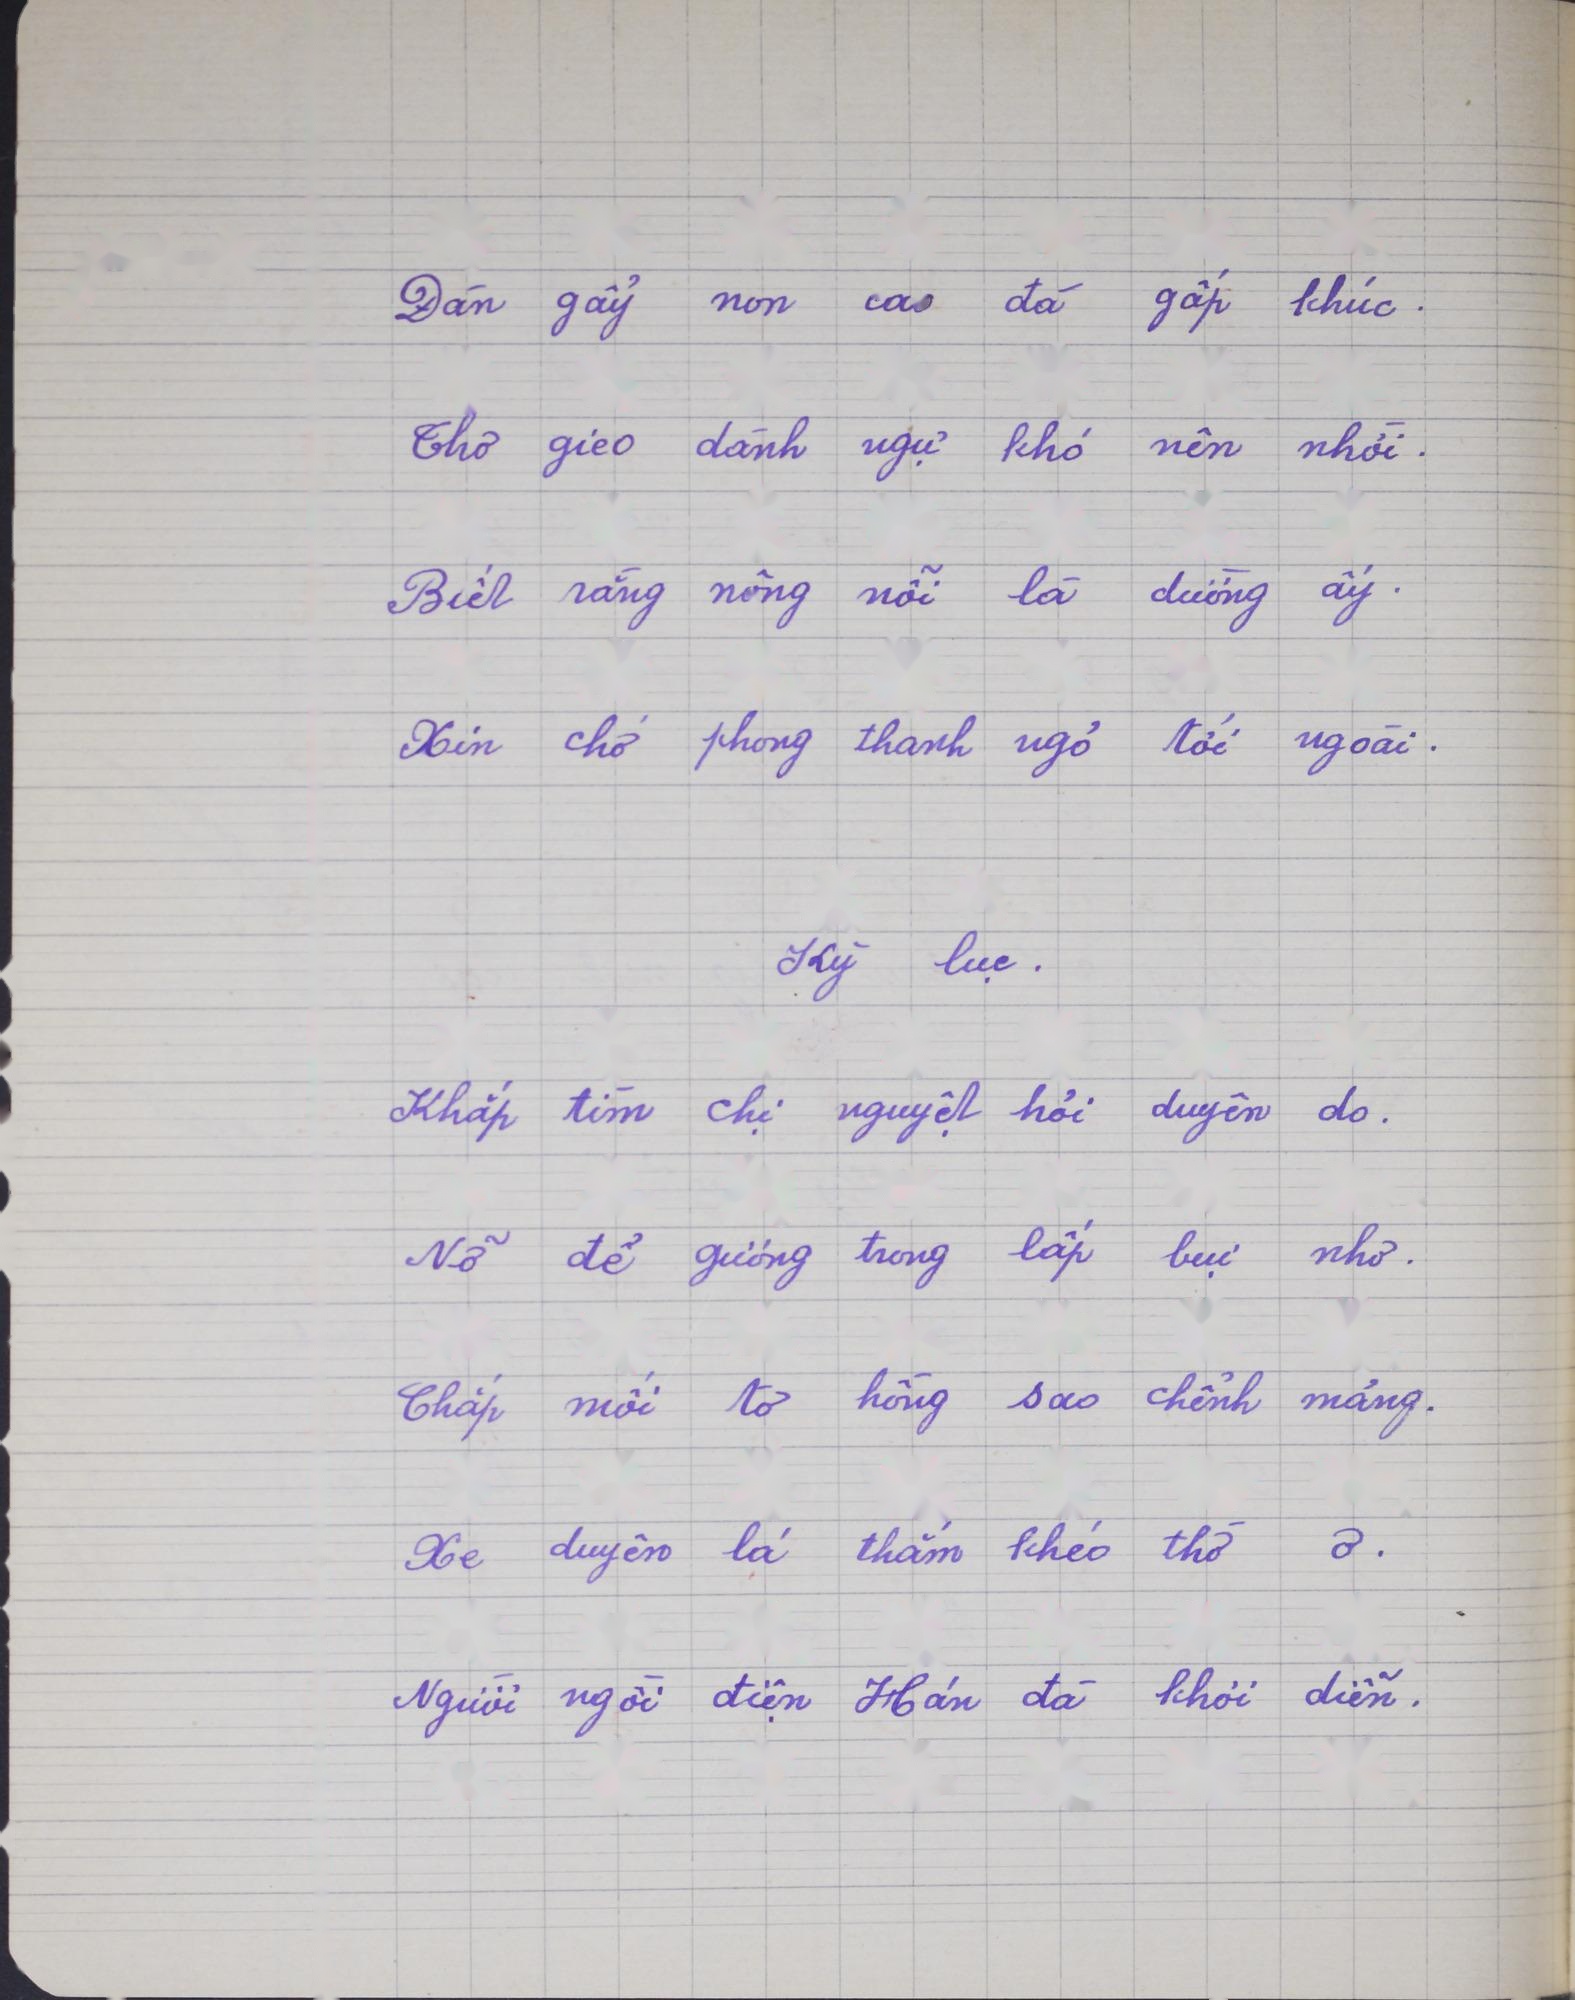 Đàn gẩy non cao đà gấp khúc.
Thơ gieo dành ngự khó nên nhời.
Biết rằng nông nỗi là dường ấy.
Xin chớ phong thanh ngỏ tới ngoài.
Kỳ lục.
Khắp tìm chị nguyệt hỏi duyên do.
Nỡ để gương trong lấp bụi nhơ.
Chắp mối tơ hồng sao chểnh mảng.
Xe duyên lá thắm khéo thờ ơ.
Người ngồi điện Hán đà khơi diễn.